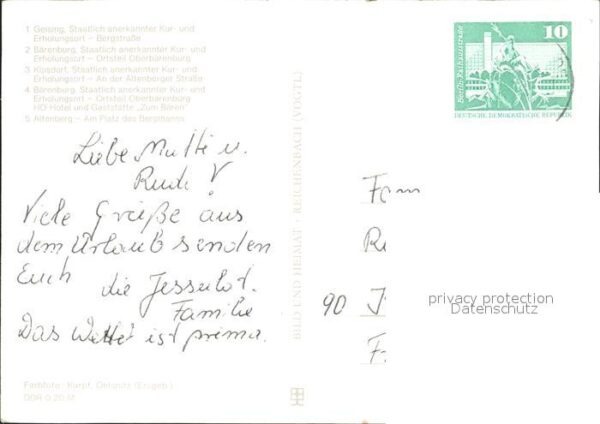 1 Geising, Staatlich anerkannter Kur- und
Erholungsort – Bergstraße
2 Bärenburg, Staatlich anerkannter Kur- und
Erholungsort – Ortsteil Oberbärenburg
3 Kipsdorf, Staatlich anerkannter Kur- und
Erholungsort – An der Altenberger Straße
4 Bärenburg, Staatlich anerkannter Kur- und
Erholungsort – Ortsteil Oberbärenburg
HO Hotel und Gaststätte „Zum Bären"
5 Altenberg – Am Platz des Bergmanns
Liebe Mutti u.
Rudi!
Viele Grüße aus
dem Urlaub senden
Euch die
Familie
Das Wetter ist prima.
Farbfoto: Karpf, Oelsnitz (Erzgeb.)
DDR 0,20 M
BILD UND HEIMAT · REICHENBACH (VOGTL)
10
Berlin, Rathausstraße
DEUTSCHE DEMOKRATISCHE REPUBLIK
Fam
90
privacy protection
Datenschutz